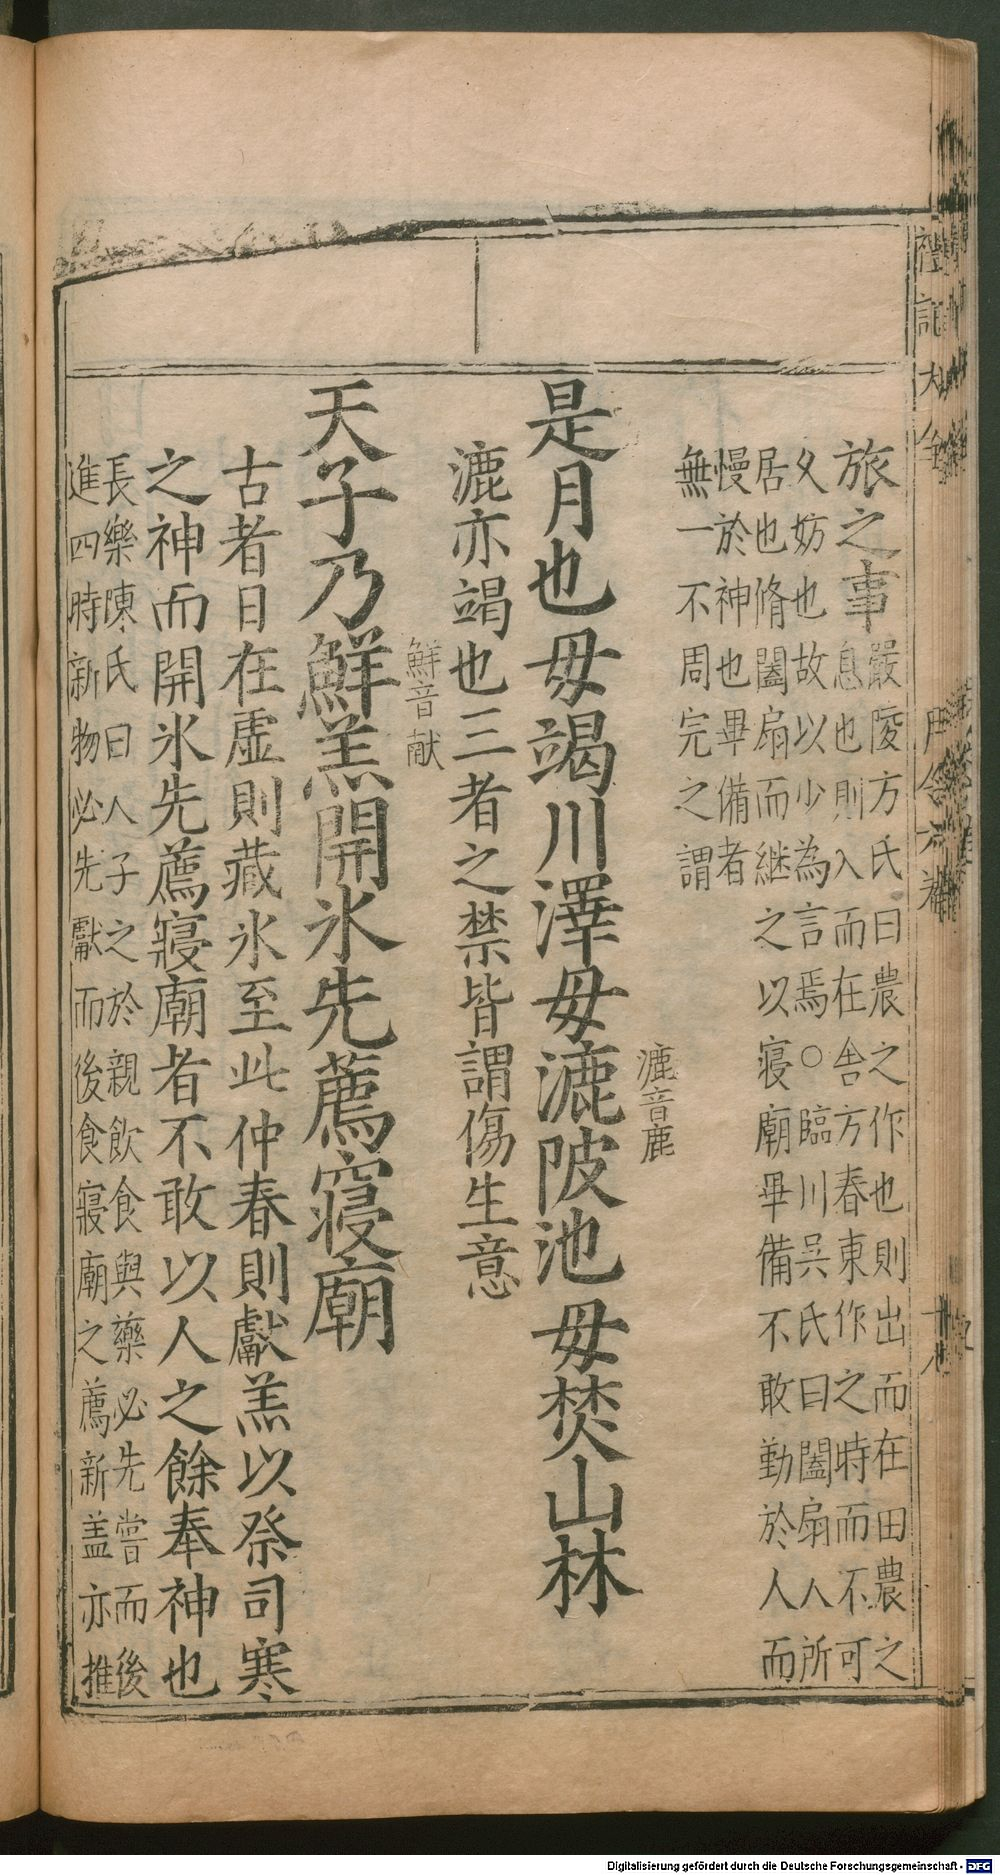 禮記大全
月令六卷
十八
旅之事嚴陵方氏曰農之作也則出而在田農之
息也則入而在舍方春東作之時而不可
久妨也故以少為言焉○臨川吳氏曰闔扇人所
居也脩闔扇而継之以寢廟畢備不敢勤於人而
慢於神也畢備者
無一不周完之謂
漉音鹿
是月也毋竭川澤毋漉陂池毋焚山林
漉亦竭也三者之禁皆謂傷生意
鮮音献
天子乃鮮羔開氷先薦寢廟
古者日在虛則藏氷至此仲春則獻羔以祭司寒
之神而開氷先薦寢廟者不敢以人之餘奉神也
長樂陳氏曰人子之於親飲食與藥必先嘗而後
進四時新物必先獻而後食寢廟之薦新盖亦推
Digitalisierung gefördert durch die Deutsche Forschungsgemeinschaft - DFG